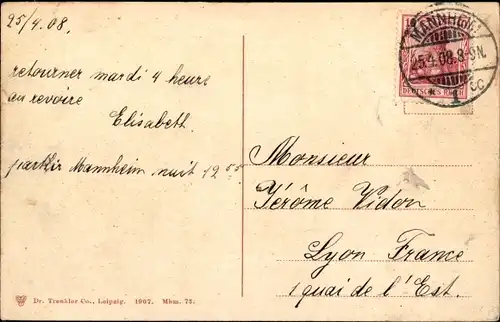 25/4.08.
retourner mardi 4 heure
au revoire
Elisabeth.
partir Mannheim nuit 12 55
MANNHEIM
25.4.08.8-9N.
* 1 cc
DEUTSCHES REICH
Monsieur
Jérôme Vidon
Lyon France
1 quai de l'Est.
Dr. Trenkler Co., Leipzig. 1907. Mhm. 73.